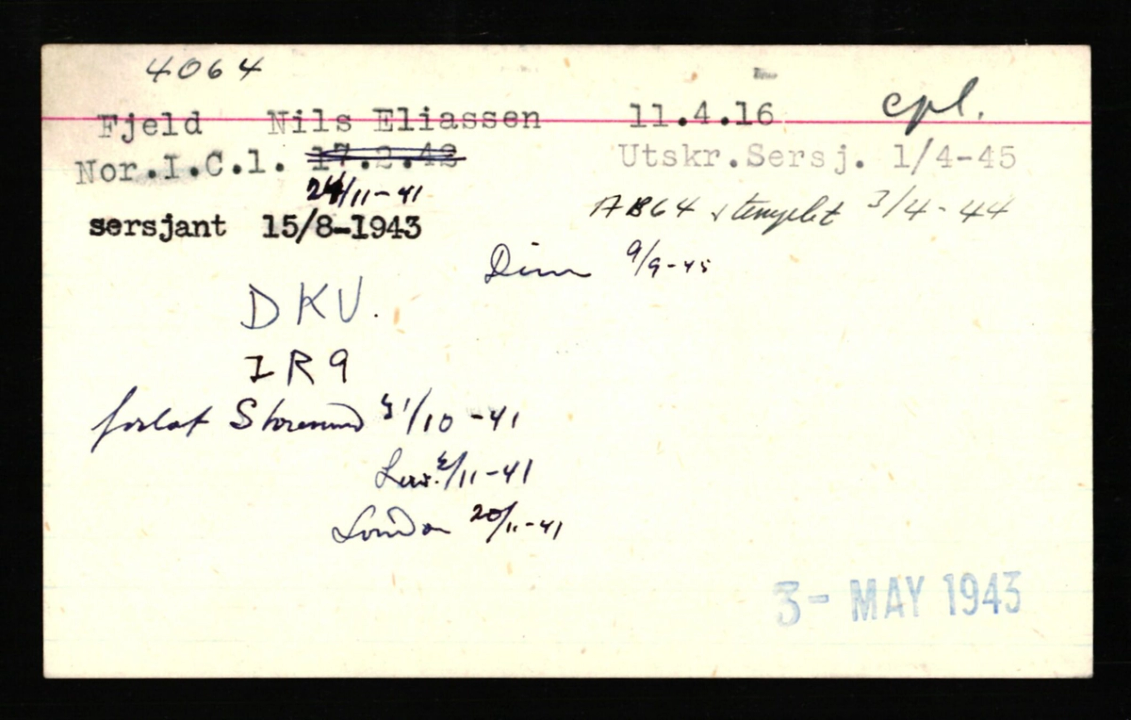 4064
cpl.
Fjeld Nils Eliassen 11.4.16
Nor.I.C.1. 17.2.42 Utskr.Sersj. 1/4-45
24/11-41
AB64 stemplet 3/4-44
sersjant 15/8-1943
Dim 9/9-45
DKV.
IR9
forlot 31/10-41
2/11-41
London 20/11-41
3- MAY 1943